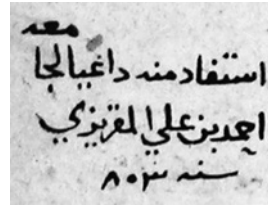 استفاد منه داعيا لجا
معه
احمد بن علي المقريزي
سنه ٨٠٣